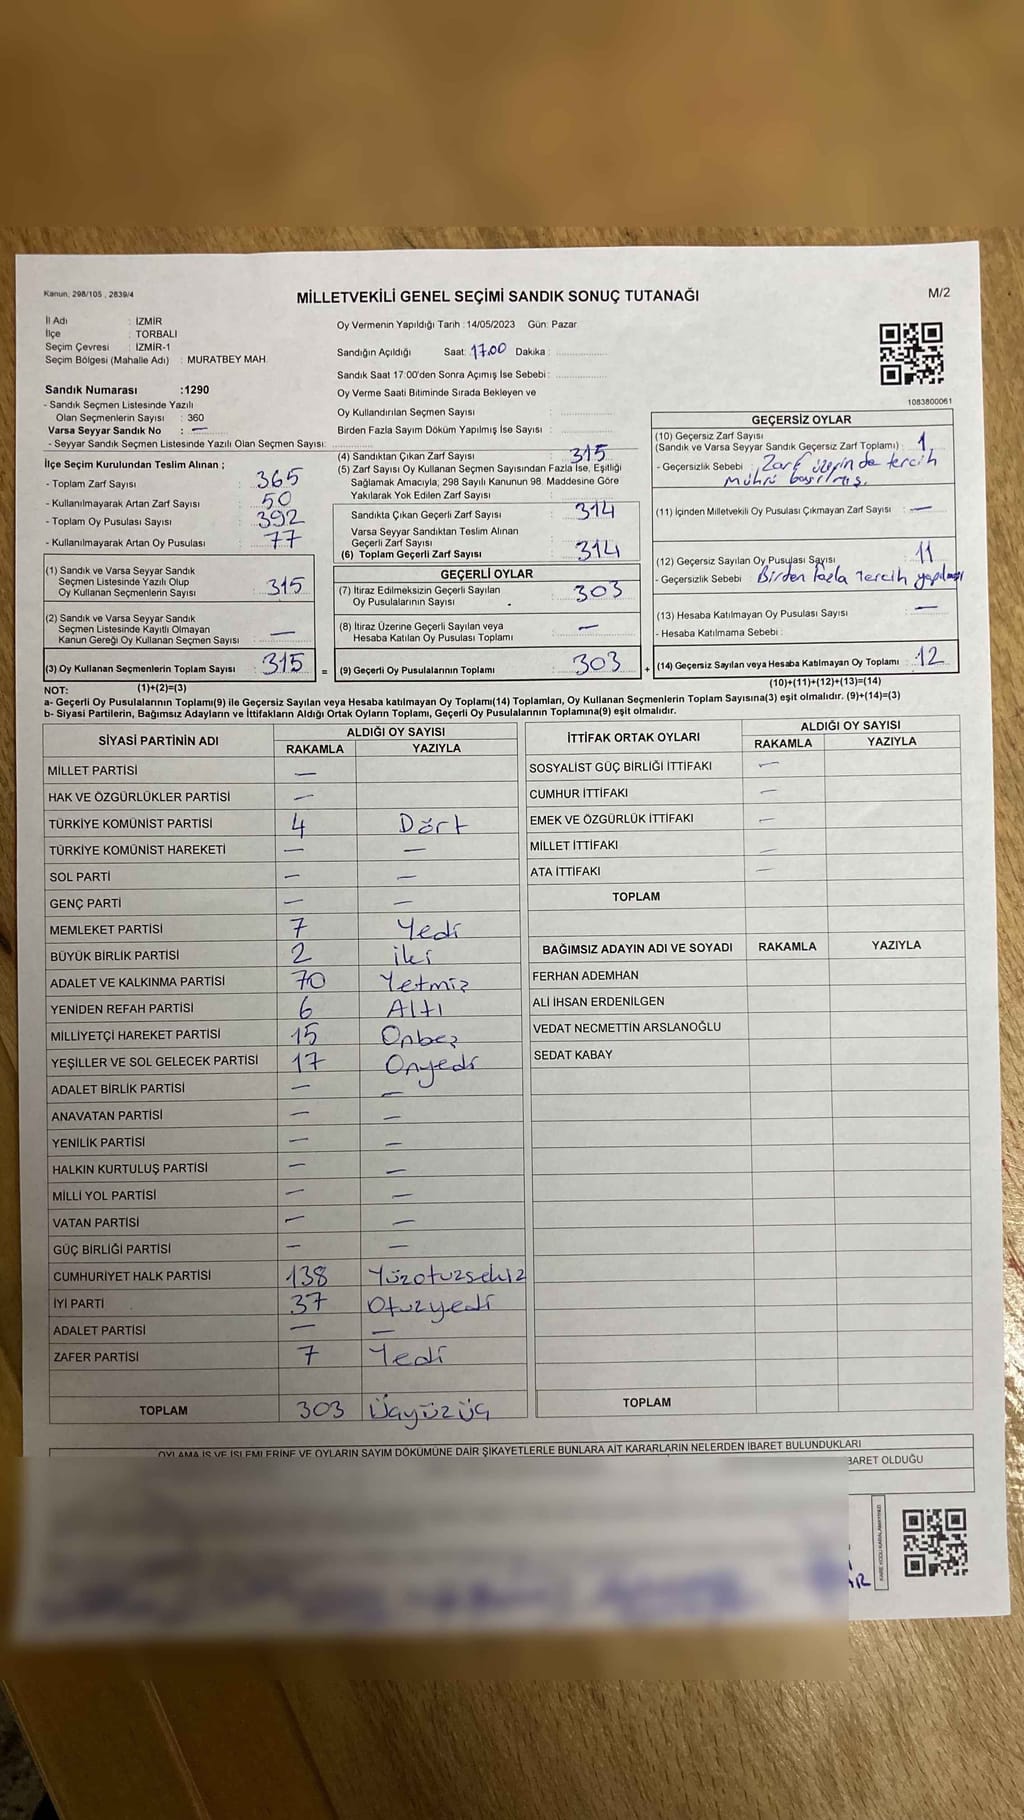 Kanun, 298/105 , 2839/4
MİLLETVEKİLİ GENEL SEÇİMİ SANDIK SONUÇ TUTANAĞI
M/2
İl Adı : İZMİR
İlçe : TORBALI
Seçim Çevresi : İZMİR-1
Seçim Bölgesi (Mahalle Adı) : MURATBEY MAH.
Oy Vermenin Yapıldığı Tarih : 14/05/2023 Gün: Pazar
Sandığın Açıldığı Saat: 17.00 Dakika :
Sandık Saat 17:00'den Sonra Açımış İse Sebebi :
Sandık Numarası :1290
- Sandık Seçmen Listesinde Yazılı
Olan Seçmenlerin Sayısı : 360
Varsa Seyyar Sandık No : —
- Seyyar Sandık Seçmen Listesinde Yazılı Olan Seçmen Sayısı:
Oy Verme Saati Bitiminde Sırada Bekleyen ve
Oy Kullandırılan Seçmen Sayısı :
Birden Fazla Sayım Döküm Yapılmış İse Sayısı :
1083800061
İlçe Seçim Kurulundan Teslim Alınan ;
- Toplam Zarf Sayısı : 365
- Kullanılmayarak Artan Zarf Sayısı : 50
- Toplam Oy Pusulası Sayısı : 392
- Kullanılmayarak Artan Oy Pusulası : 77
(1) Sandık ve Varsa Seyyar Sandık
Seçmen Listesinde Yazılı Olup
Oy Kullanan Seçmenlerin Sayısı : 315
(2) Sandık ve Varsa Seyyar Sandık
Seçmen Listesinde Kayıtlı Olmayan
Kanun Gereği Oy Kullanan Seçmen Sayısı : —
(3) Oy Kullanan Seçmenlerin Toplam Sayısı : 315 =
(4) Sandıktan Çıkan Zarf Sayısı : 315
(5) Zarf Sayısı Oy Kullanan Seçmen Sayısından Fazla İse, Eşitliği
Sağlamak Amacıyla, 298 Sayılı Kanunun 98. Maddesine Göre
Yakılarak Yok Edilen Zarf Sayısı :
Sandıkta Çıkan Geçerli Zarf Sayısı : 314
Varsa Seyyar Sandıktan Teslim Alınan
Geçerli Zarf Sayısı
(6) Toplam Geçerli Zarf Sayısı : 314
GEÇERLİ OYLAR
(7) İtiraz Edilmeksizin Geçerli Sayılan
Oy Pusulalarının Sayısı : 303
(8) İtiraz Üzerine Geçerli Sayılan veya
Hesaba Katılan Oy Pusulası Toplamı : —
(9) Geçerli Oy Pusulalarının Toplamı : 303 +
GEÇERSİZ OYLAR
(10) Geçersiz Zarf Sayısı
(Sandık ve Varsa Seyyar Sandık Geçersiz Zarf Toplamı) : 1
- Geçersizlik Sebebi : Zarf üzerinde tercih
mührü basılmış.
(11) İçinden Milletvekili Oy Pusulası Çıkmayan Zarf Sayısı : —
(12) Geçersiz Sayılan Oy Pusulası Sayısı : 11
- Geçersizlik Sebebi : Birden fazla tercih yapılmış
(13) Hesaba Katılmayan Oy Pusulası Sayısı : —
- Hesaba Katılmama Sebebi :
(14) Geçersiz Sayılan veya Hesaba Katılmayan Oy Toplamı : 12
NOT: (1)+(2)=(3)
(10)+(11)+(12)+(13)=(14)
a- Geçerli Oy Pusulalarının Toplamı(9) ile Geçersiz Sayılan veya Hesaba katılmayan Oy Toplamı(14) Toplamları, Oy Kullanan Seçmenlerin Toplam Sayısına(3) eşit olmalıdır. (9)+(14)=(3)
b- Siyasi Partilerin, Bağımsız Adayların ve İttifakların Aldığı Ortak Oyların Toplamı, Geçerli Oy Pusulalarının Toplamına(9) eşit olmalıdır.
SİYASİ PARTİNİN ADI ALDIĞI OY SAYISI
RAKAMLA YAZIYLA
MİLLET PARTİSİ —
HAK VE ÖZGÜRLÜKLER PARTİSİ —
TÜRKİYE KOMÜNİST PARTİSİ 4 Dört
TÜRKİYE KOMÜNİST HAREKETİ — —
SOL PARTİ — —
GENÇ PARTİ — —
MEMLEKET PARTİSİ 7 Yedi
BÜYÜK BİRLİK PARTİSİ 2 iki
ADALET VE KALKINMA PARTİSİ 70 Yetmiş
YENİDEN REFAH PARTİSİ 6 Altı
MİLLİYETÇİ HAREKET PARTİSİ 15 Onbeş
YEŞİLLER VE SOL GELECEK PARTİSİ 17 Onyedi
ADALET BİRLİK PARTİSİ — —
ANAVATAN PARTİSİ — —
YENİLİK PARTİSİ — —
HALKIN KURTULUŞ PARTİSİ — —
MİLLİ YOL PARTİSİ — —
VATAN PARTİSİ — —
GÜÇ BİRLİĞİ PARTİSİ — —
CUMHURİYET HALK PARTİSİ 138 Yüzotuzsekiz
İYİ PARTİ 37 Otuzyedi
ADALET PARTİSİ — —
ZAFER PARTİSİ 7 Yedi
TOPLAM 303 Üçyüzüç
İTTİFAK ORTAK OYLARI ALDIĞI OY SAYISI
RAKAMLA YAZIYLA
SOSYALİST GÜÇ BİRLİĞİ İTTİFAKI —
CUMHUR İTTİFAKI —
EMEK VE ÖZGÜRLÜK İTTİFAKI —
MİLLET İTTİFAKI —
ATA İTTİFAKI —
TOPLAM
BAĞIMSIZ ADAYIN ADI VE SOYADI RAKAMLA YAZIYLA
FERHAN ADEMHAN
ALİ İHSAN ERDENİLGEN
VEDAT NECMETTİN ARSLANOĞLU
SEDAT KABAY
TOPLAM
OYLAMA İŞ VE İŞLEMLERİNE VE OYLARIN SAYIM DÖKÜMÜNE DAİR ŞİKAYETLERLE BUNLARA AİT KARARLARIN NELERDEN İBARET BULUNDUKLARI
BARET OLDUĞU